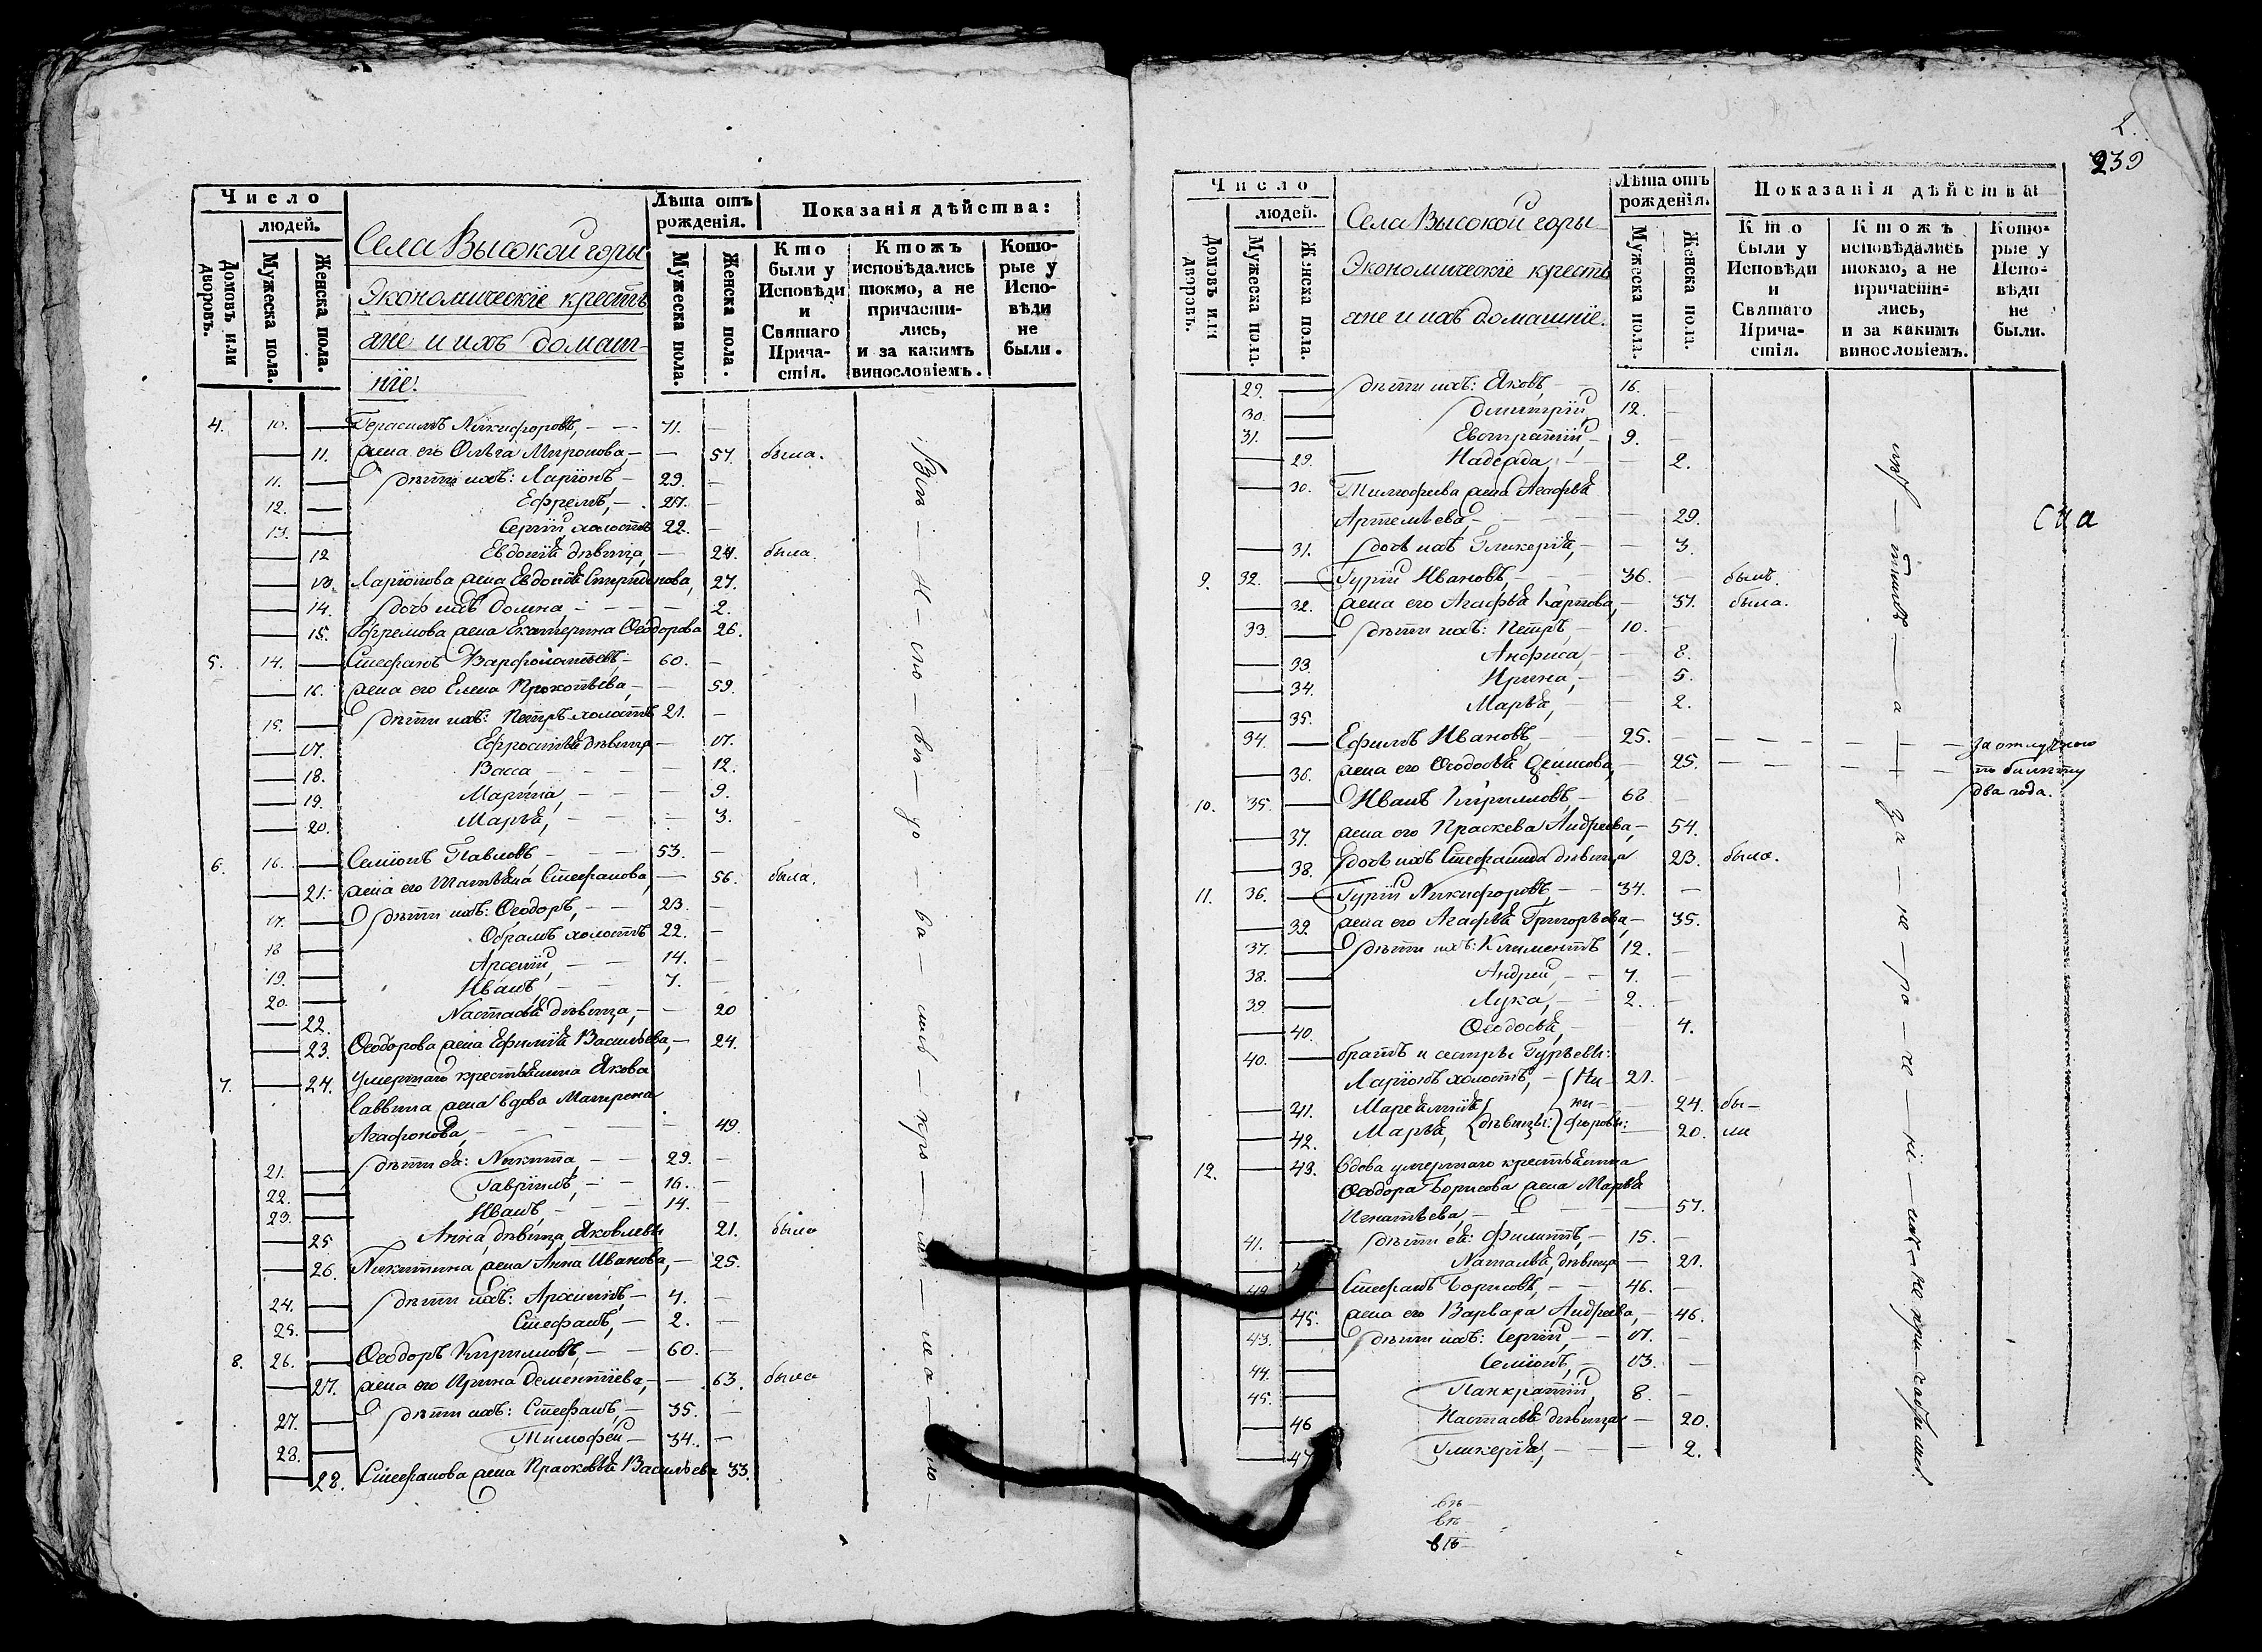 Число
людей.
Домовъ или дворовъ.
Мужеска пола.
Женска пола.
Села Высокой горы
Экономическіе кресть
яне и ихъ домаш-
ніе.
Лѣта отъ рожденія.
Мужеска пола.
Женска пола.
Показанія дѣйства:
Кто были у Исповѣди и Святаго Причастія.
Ктожъ исповѣдались токмо, а не причастились, и за какимъ винословіемъ.
Которые у Исповѣди не были.
4. 10. — Герасимъ Никифоровъ, — 71. —
— 11. жена его Ольга Миронова, — 57. была.
11. — дѣти ихъ: Ларіонъ — 29. —
12. — Ефремъ, — 27. —
13. — Сергій холостъ 22. —
— 12 Евдокія дѣвица, — 24. была.
— 13. Ларіонова жена Евдокія Спиридонова, 27.
— 14. дочь ихъ Домна, — 2.
— 15. Ефремова жена Екатерина Ѳеодорова 26.
5. 14. — Стефанъ Варфоломѣевъ, — 60. —
— 16. жена его Елена Прокопьева, — 59.
15. — дѣти ихъ: Петръ холостъ 21. —
— 17. Ефросинья дѣвица — 17.
— 18. Васса — 12.
— 19. Марина, — 9.
— 20. Марья, — 3.
6. 16. — Семіонъ Павловъ — 53. —
— 21. жена его Татьяна Стефанова, — 56. была.
17. — дѣти ихъ: Ѳеодоръ, — 23. —
18 — Абрамъ холостъ 22. —
19. — Арсеній, — 14. —
20. — Иванъ — 7. —
— 22. Настасья дѣвица, — 20
— 23. Ѳеодорова жена Ефимія Васильева, — 24.
7. — 24. Умершаго крестьянина Якова
Саввина жена вдова Матрена
Агафонова, — 49.
21. — дѣти ея: Никита, — 29. —
22. — Гавріилъ, — 16. —
23. — Иванъ — 14. —
— 25 Анна, дѣвица, Яковлевы 21. была
— 26. Никитина жена Анна Иванова, — 25.
24. — дѣти ихъ: Архипъ, — 4. —
25. — Стефанъ, — 2. —
8. 26. — Ѳеодоръ Кириловъ, — 60. —
— 27. жена его Ирина Дементіева, — 63. была
27. — дѣти ихъ: Стефанъ, — 35. —
28. — Тимофей — 34. —
— 28. Стефанова жена Прасковья Васильева 33.
2.
239
Число
людей.
Домовъ или дворовъ.
Мужеска пола.
Женска пола.
Села Высокой горы
Экономическіе кресть
яне и ихъ домашніе.
Лѣта отъ рожденія.
Мужеска пола.
Женска пола.
Показанія дѣйства:
Кто были у Исповѣди и Святаго Причастія.
Ктожъ исповѣдались токмо, а не причастились, и за какимъ винословіемъ.
Которые у Исповѣди не были.
29. — дѣти ихъ: Яковъ, — 16. —
30. — Дмитрій, 12. —
31. — Евстратій, — 9. —
— 29. Надежда, — 2.
— 30. Тимофеева жена Агафья
Артемьева, — 29.
— 31. дочь ихъ Гликерія, — 3.
9. 32. — Гурій Ивановъ, — 36. — былъ.
— 32. жена его Агафья Карпова, — 37. была.
33. — дѣти ихъ: Петръ, — 10. —
— 33. Анфиса, — 8.
— 34. Ирина, — 5.
— 35. Марья, — 2.
34. — Ефимъ Ивановъ, — 25. — за отлучкою
— 36. жена его Ѳеодосья Денисова, — 25. — по билету
два года.
10. 35. — Иванъ Кириловъ, — 62 —
— 37. жена его Праскева Андреева, — 54.
— 38. дочь ихъ Стефанида дѣвица 23. была.
11. 36. — Гурій Никифоровъ, — 34. —
— 39. жена его Агафья Григорьева, — 35.
37. — дѣти ихъ: Климентъ 12. —
38. — Андрей, — 7. —
39. — Лука, — 2. —
— 40. Ѳеодосья, — 4.
40. — братъ и сестры Гурьевы:
Ларіонъ холостъ, — Ни- 21. —
— 41. ки- — 24. бы-
— 42. Марья, дѣвицы: форовы: — 20. ли
12. — 43. Вдова умершаго крестьянина
Ѳеодора Борисова жена Марья
Игнатьева, — 57.
41. — дѣти ея: Филиппъ, — 15. —
Наталья, дѣвица — 21.
Стефанъ Борисовъ, — 46. —
45. жена его Варвара Андреева, — 46.
43. — дѣти ихъ: Сергій, — 17. —
44. — Семіонъ, — 13. —
45. — Панкратій, 8. —
— 46 Настасья дѣвица — 20.
— 47 Гликерія, — 2.
вѣ-
вѣ-
вѣ-